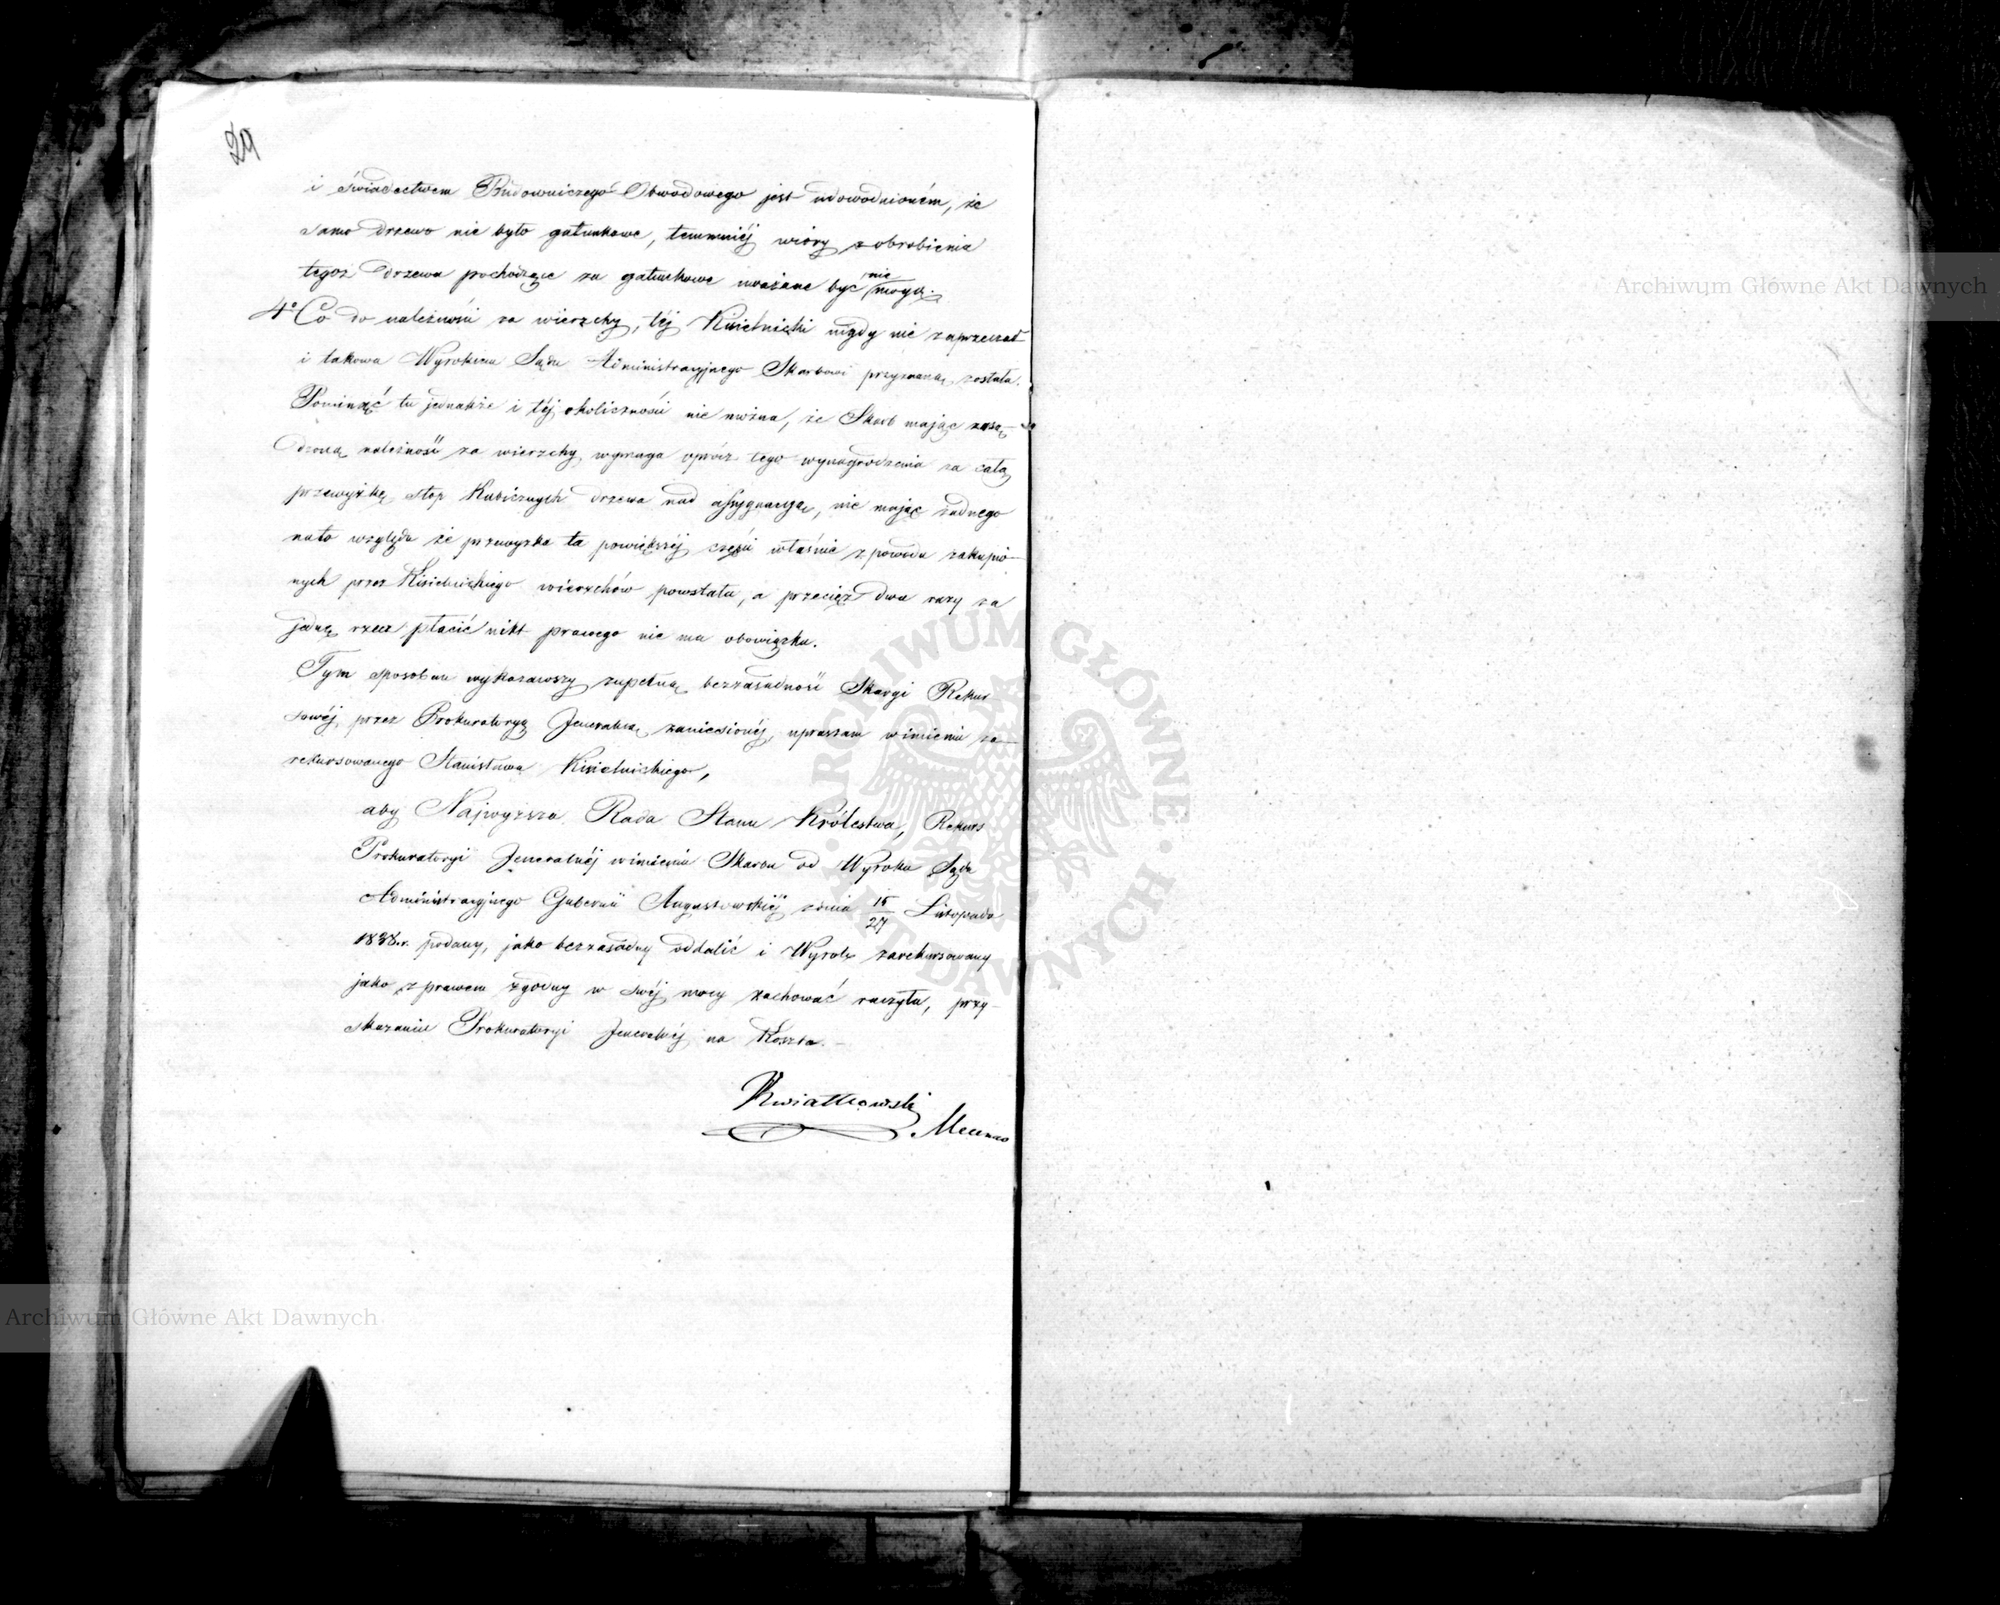 29
i świadectwem Budowniczego Obwodowego jest udowodnioném, że
samo drzewo nie było gatunkowe, temmniéj wióry z obrobienia
tegoż drzewa pochodzące za gatunkowe uważane być nie mogą.
4o Co do należności za wierzchy, téj Kisielnicki nigdy nie zaprzeczał
i takowa Wyrokiem Sądu Administracyjnego Skarbowi przyznaną została.
Pominąć tu jednakże i téj okoliczności nie można, że Skarb mając zasą-
dzoną należność za wierzchy, wymaga oprócz tego wynagrodzenia za całą
przewyżkę stop Kubicznych drzewa nad assygnacyą, nie mając żadnego
nato względu że przewyżka ta powiększéj części właśnie z powodu zakupio-
nych przez Kisielnickiego wierzchów powstała, a przecież dwa razy za
jednę rzecz płacić nikt prawego nie ma obowiązku.
Tym sposobem wykazawszy zupełną bezzasadność Skargi Rekur
sowéj, przez Prokuratoryą Jeneralną zaniesionéj, upraszam w imieniu za-
rekursowanego Stanisława Kisielnickiego,
aby Najwyższa Rada Stanu Królestwa, Rekurs
Prokuratoryi Jeneralnéj w imieniu Skarbu od Wyroku Sądu
Administracyjnego Gubernii Augustowskiéj z dnia 15/27 Listopada
1838.r. podany, jako bezzasadny oddalić i Wyrok zarekursowany
jako z prawem zgodny w swéj mocy zachować raczyła, przy-
skazaniu Prokuratoryi Jeneralnéj na Koszta.
Kwiatkowski
Mecenas
Archiwum Główne Akt Dawnych
Archiwum Główne Akt Dawnych
ARCHIWUM GŁÓWNE AKT DAWNYCH